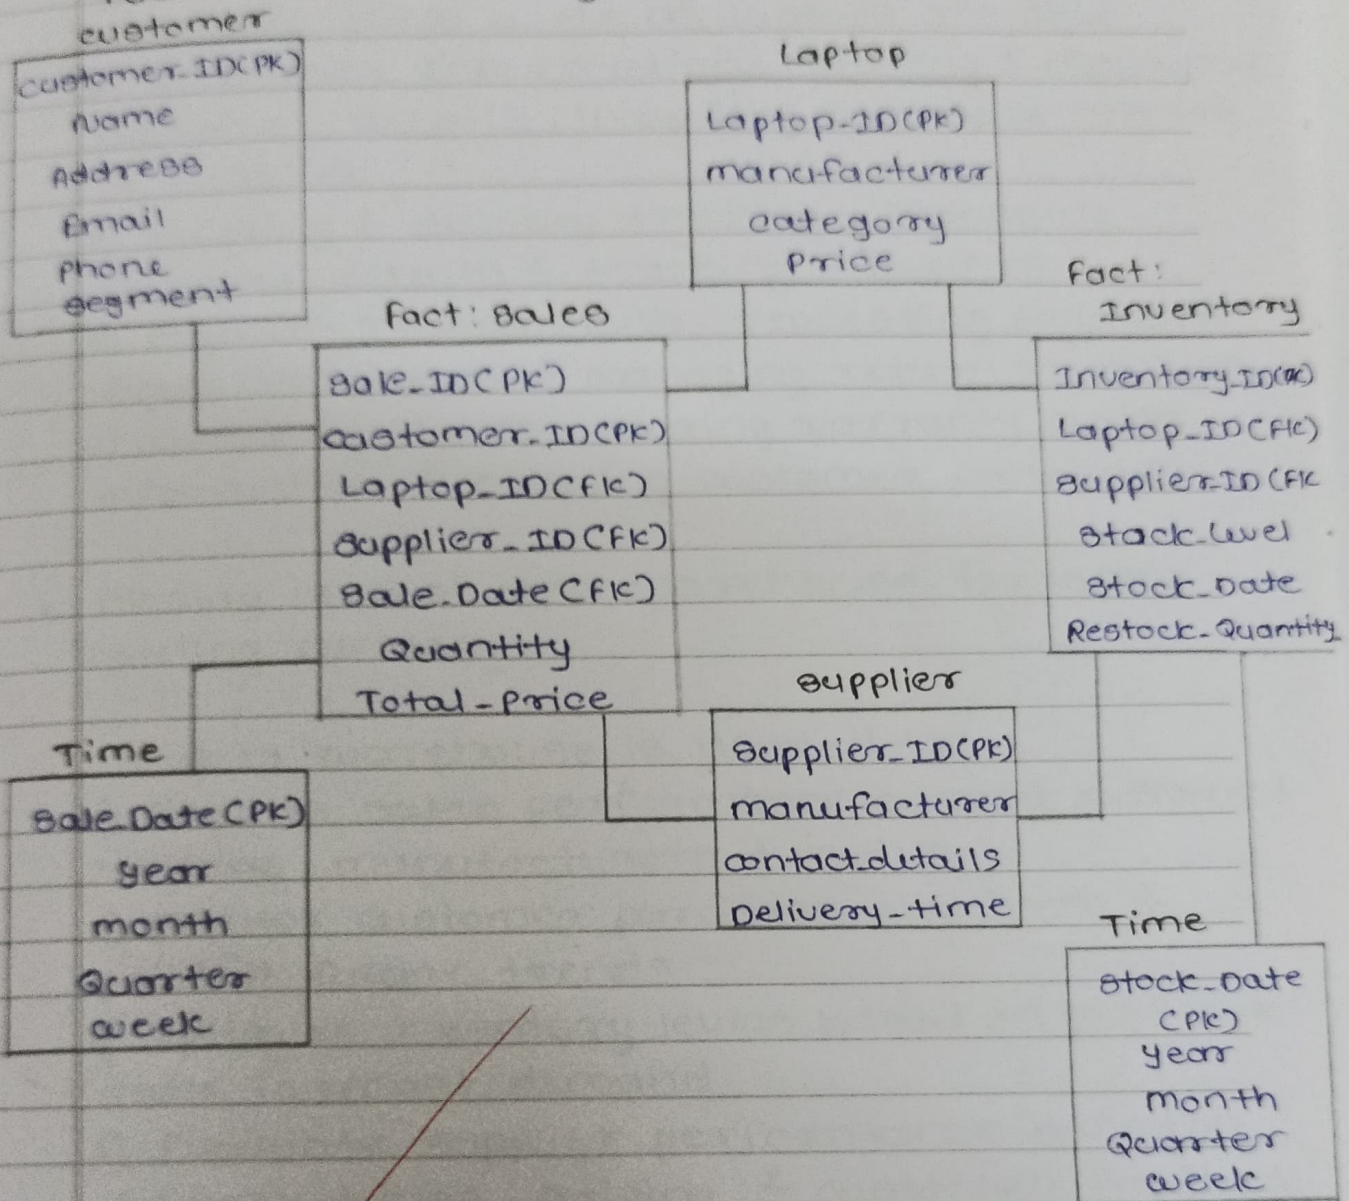 customer
customer_ID(PK)
Name
Address
Email
phone
segment
Laptop
Laptop-ID(PK)
manufacturer
category
price
Fact: Sales
Sale_ID(PK)
customer_ID(PK)
Laptop_ID(FK)
Supplier_ID(FK)
Sale_Date(FK)
Quantity
Total_price
Fact:
Inventory
Inventory_ID(PK)
Laptop_ID(FK)
Supplier_ID(FK
Stock_level
Stock_Date
Restock_Quantity
Time
Sale_Date(PK)
year
month
Quarter
week
Supplier
Supplier_ID(PK)
manufacturer
contact_details
Delivery_time
Time
Stock_Date
(PK)
year
month
Quarter
week